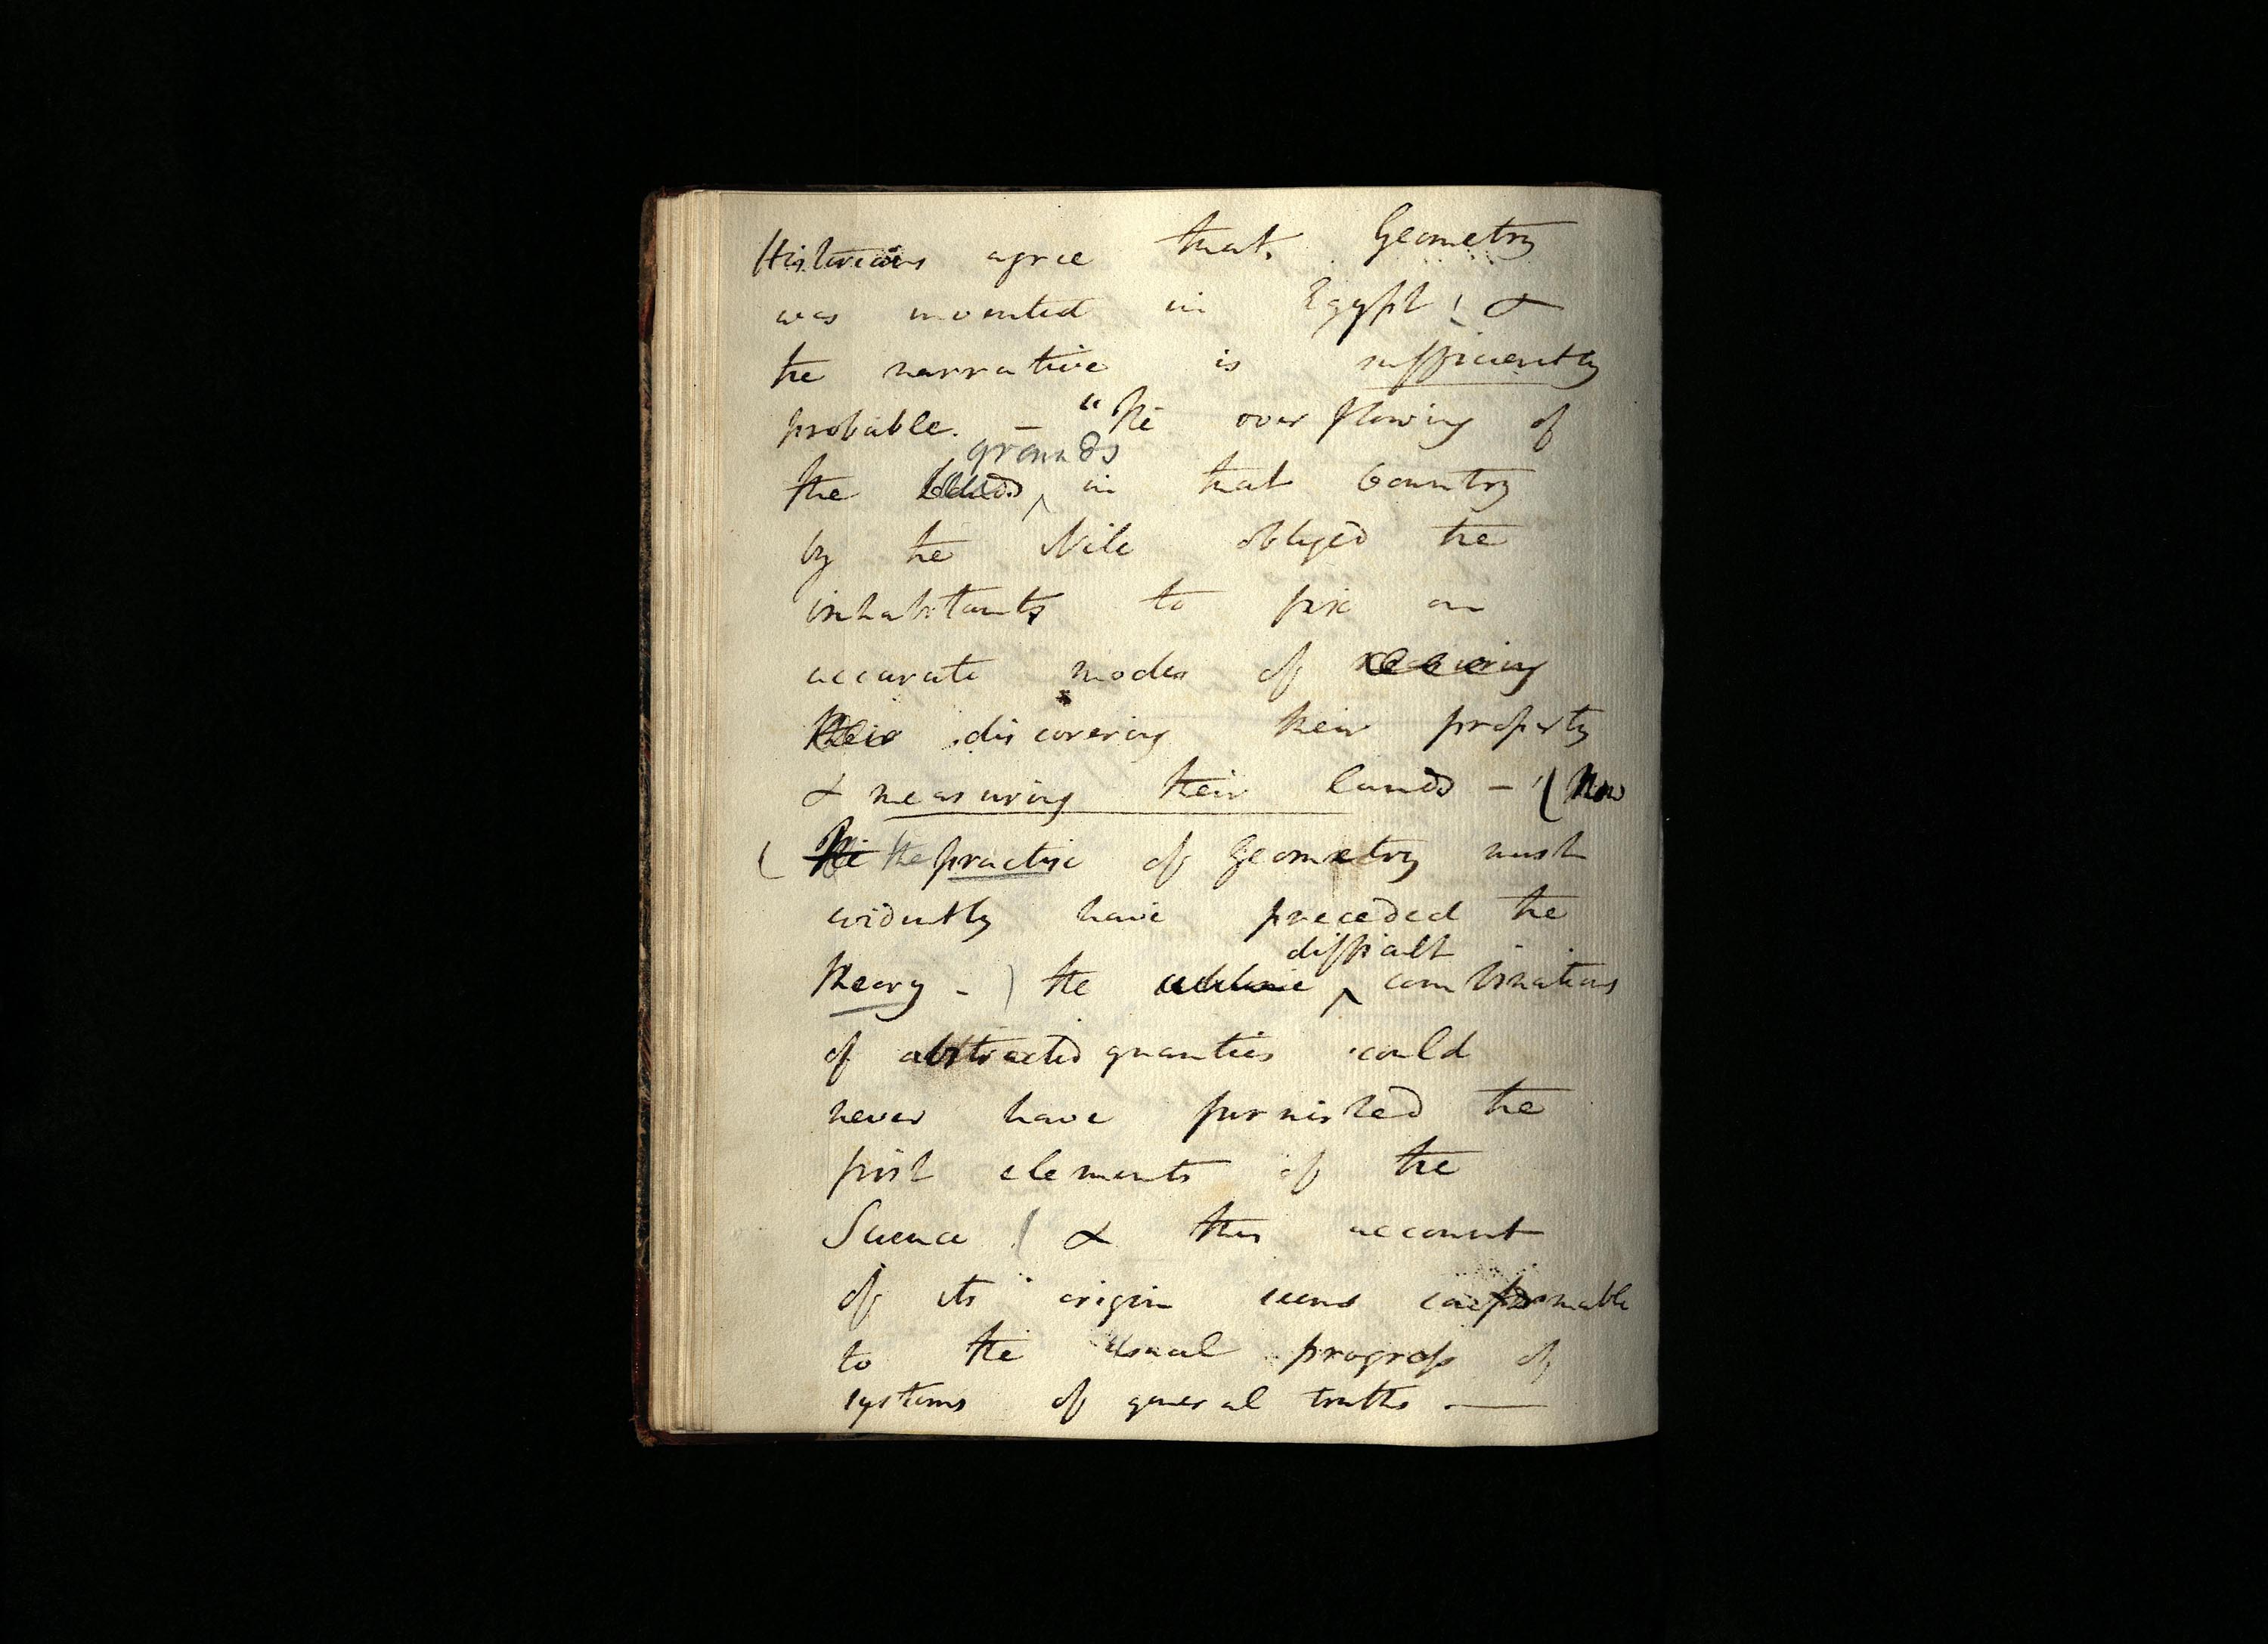 Historians agree that Geometry
was invented in Egypt ! &
the narrative is sufficiently
probable. – "The overflowing of
grounds
the in that Country
by the Nile obliged the
inhabitants to fix on
accurate modes of
their discovering their property
& measuring their lands – " (Now
( The the practise of Geometry must
evidently have preceded the
difficult
theory – ) the combinations
of abstracted quanties could
never have furnished the
first elements of the
Science ! & this account
of its origin seems conformable
to the usual progress of
systems of general truths . —